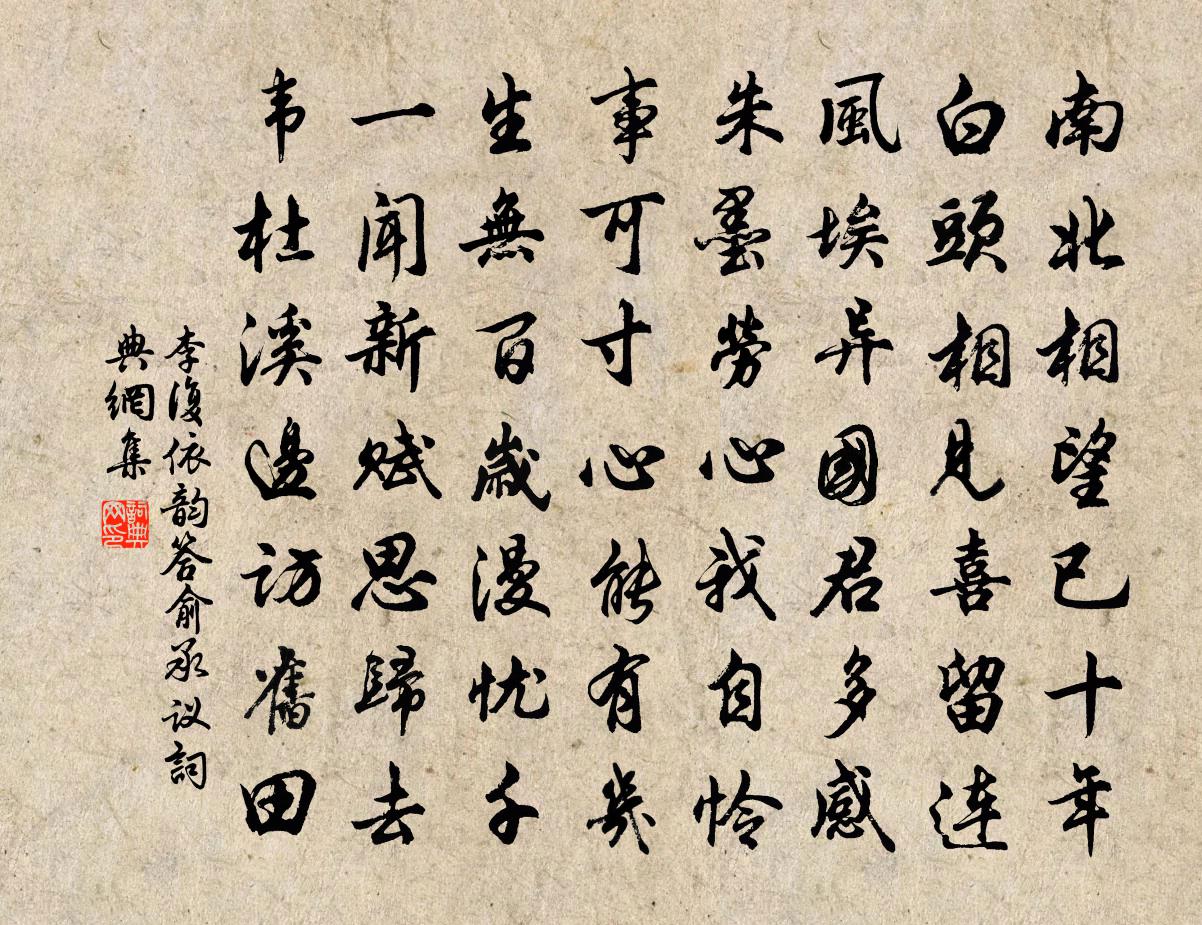 南北相望已十年
白頭相見喜留連
風埃异國君多感
朱墨勞心我自怜
事可寸心能有幾
生無百歲漫忧千
一闻新赋思歸去
韦杜溪邊訪舊田
李復依韵答俞承议詞
典網集
詞典网印